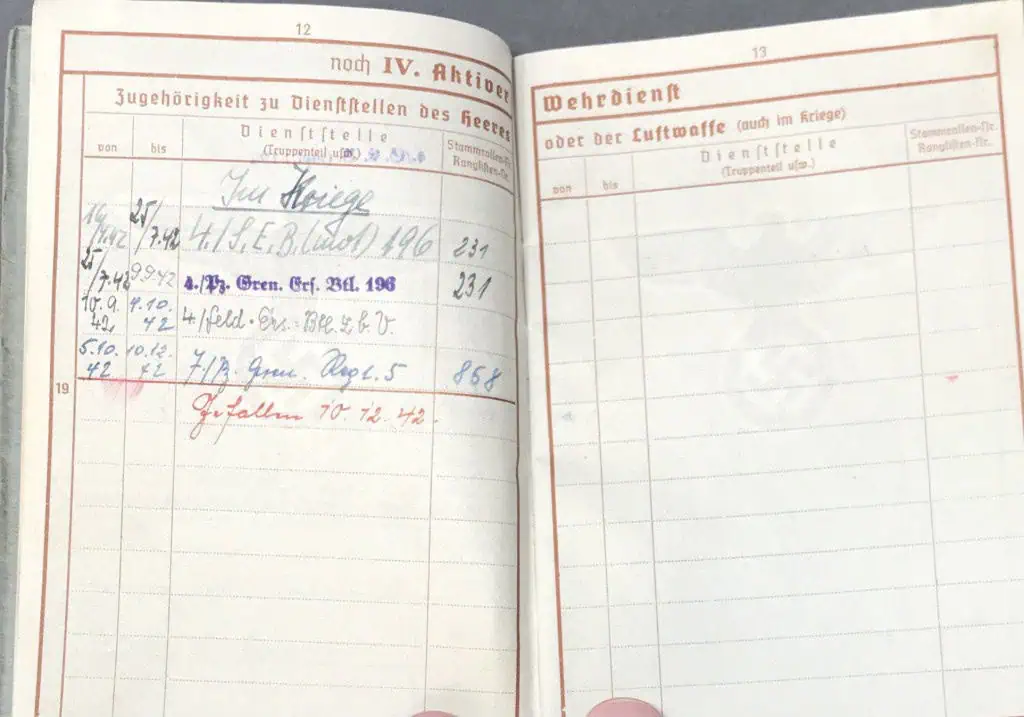 12
noch IV. Aktiver
Zugehörigkeit zu Dienststellen des Heeres
von
bis
Dienststelle
(Truppenteil usw.)
Stammrollen-Nr.
Ranglisten-Nr.
Im Kriege
25/
/7.42 4./S.E.B.(mot) 196 231
25/
/7.42 9.9.42 4./Pz. Gren. Ers. Btl. 196 231
10.9. 4.10.
42 42 4/Feld-Ers.-Btl. z.b.V.
5.10. 10.12.
42 42 7./Pz. Gren. Regt. 5 868
19
Gefallen 10.12.42.
13
Wehrdienst
oder der Luftwaffe (auch im Kriege)
von
bis
Dienststelle
(Truppenteil usw.)
Stammrollen-Nr.
Ranglisten-Nr.